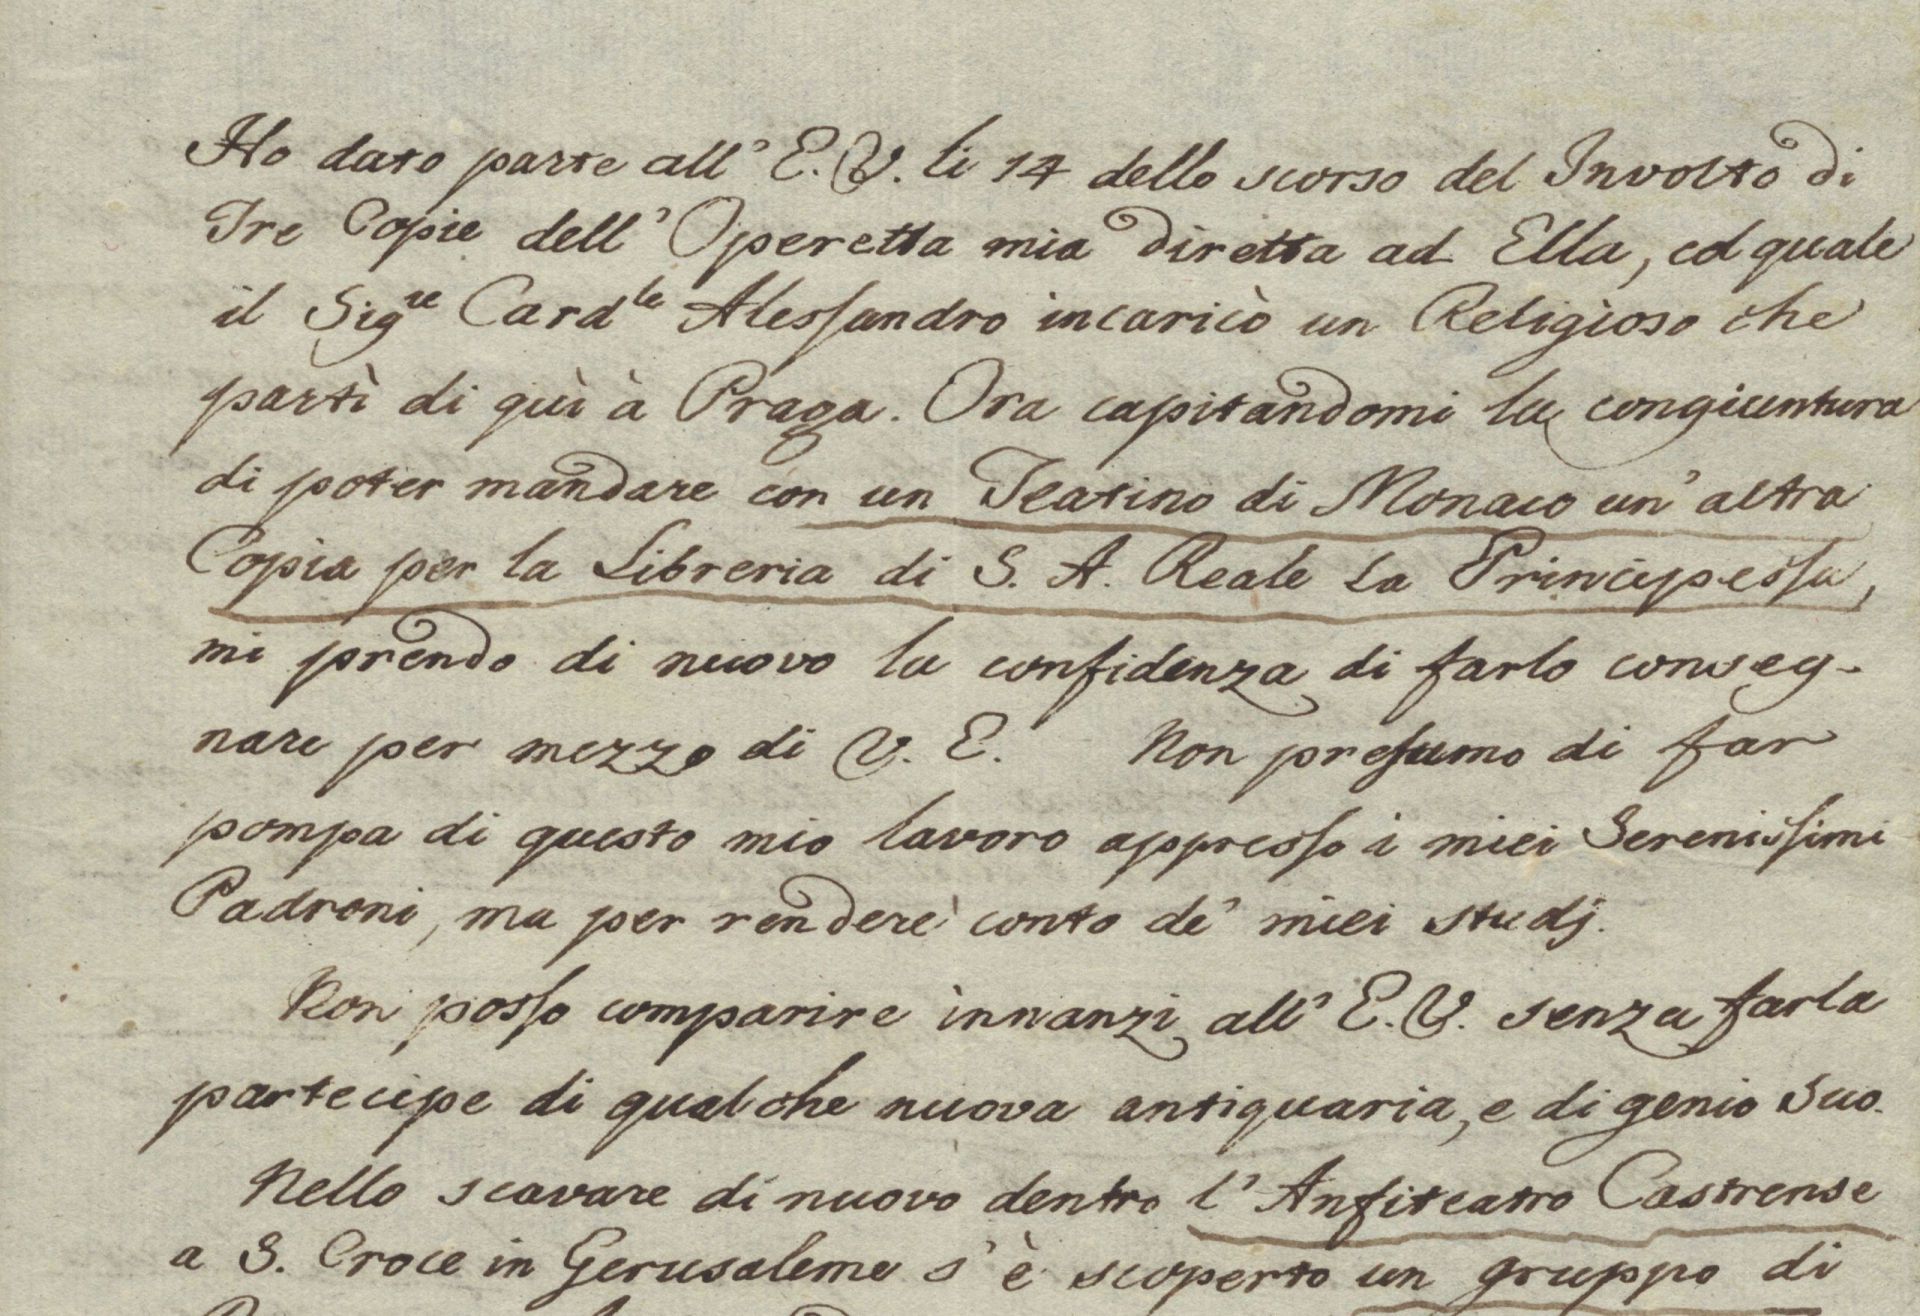 Ho dato parte all' E. V. li 14 dello scorso del Involto di
Tre Copie dell' Operetta mia diretta ad Ella, col quale
il Sig.re Card.le Alessandro incaricò un Religioso che
partì di quì à Praga. Ora capitandomi la congiuntura
di poter mandare con un Teatino di Monaco un' altra
Copia per la Libreria di S. A. Reale la Principessa,
mi prendo di nuovo la confidenza di farlo conseg-
nare per mezzo di V. E. Non presumo di far
pompa di questo mio lavoro appresso i miei Serenissimi
Padroni, ma per rendere conto de' miei studj.
Non posso comparire innanzi all' E. V. senza farla
partecipe di qualche nuova antiquaria, e di genio Suo.
Nello scavare di nuovo dentro l' Anfiteatro Castrense
a S. Croce in Gerusaleme s' è scoperto un gruppo di